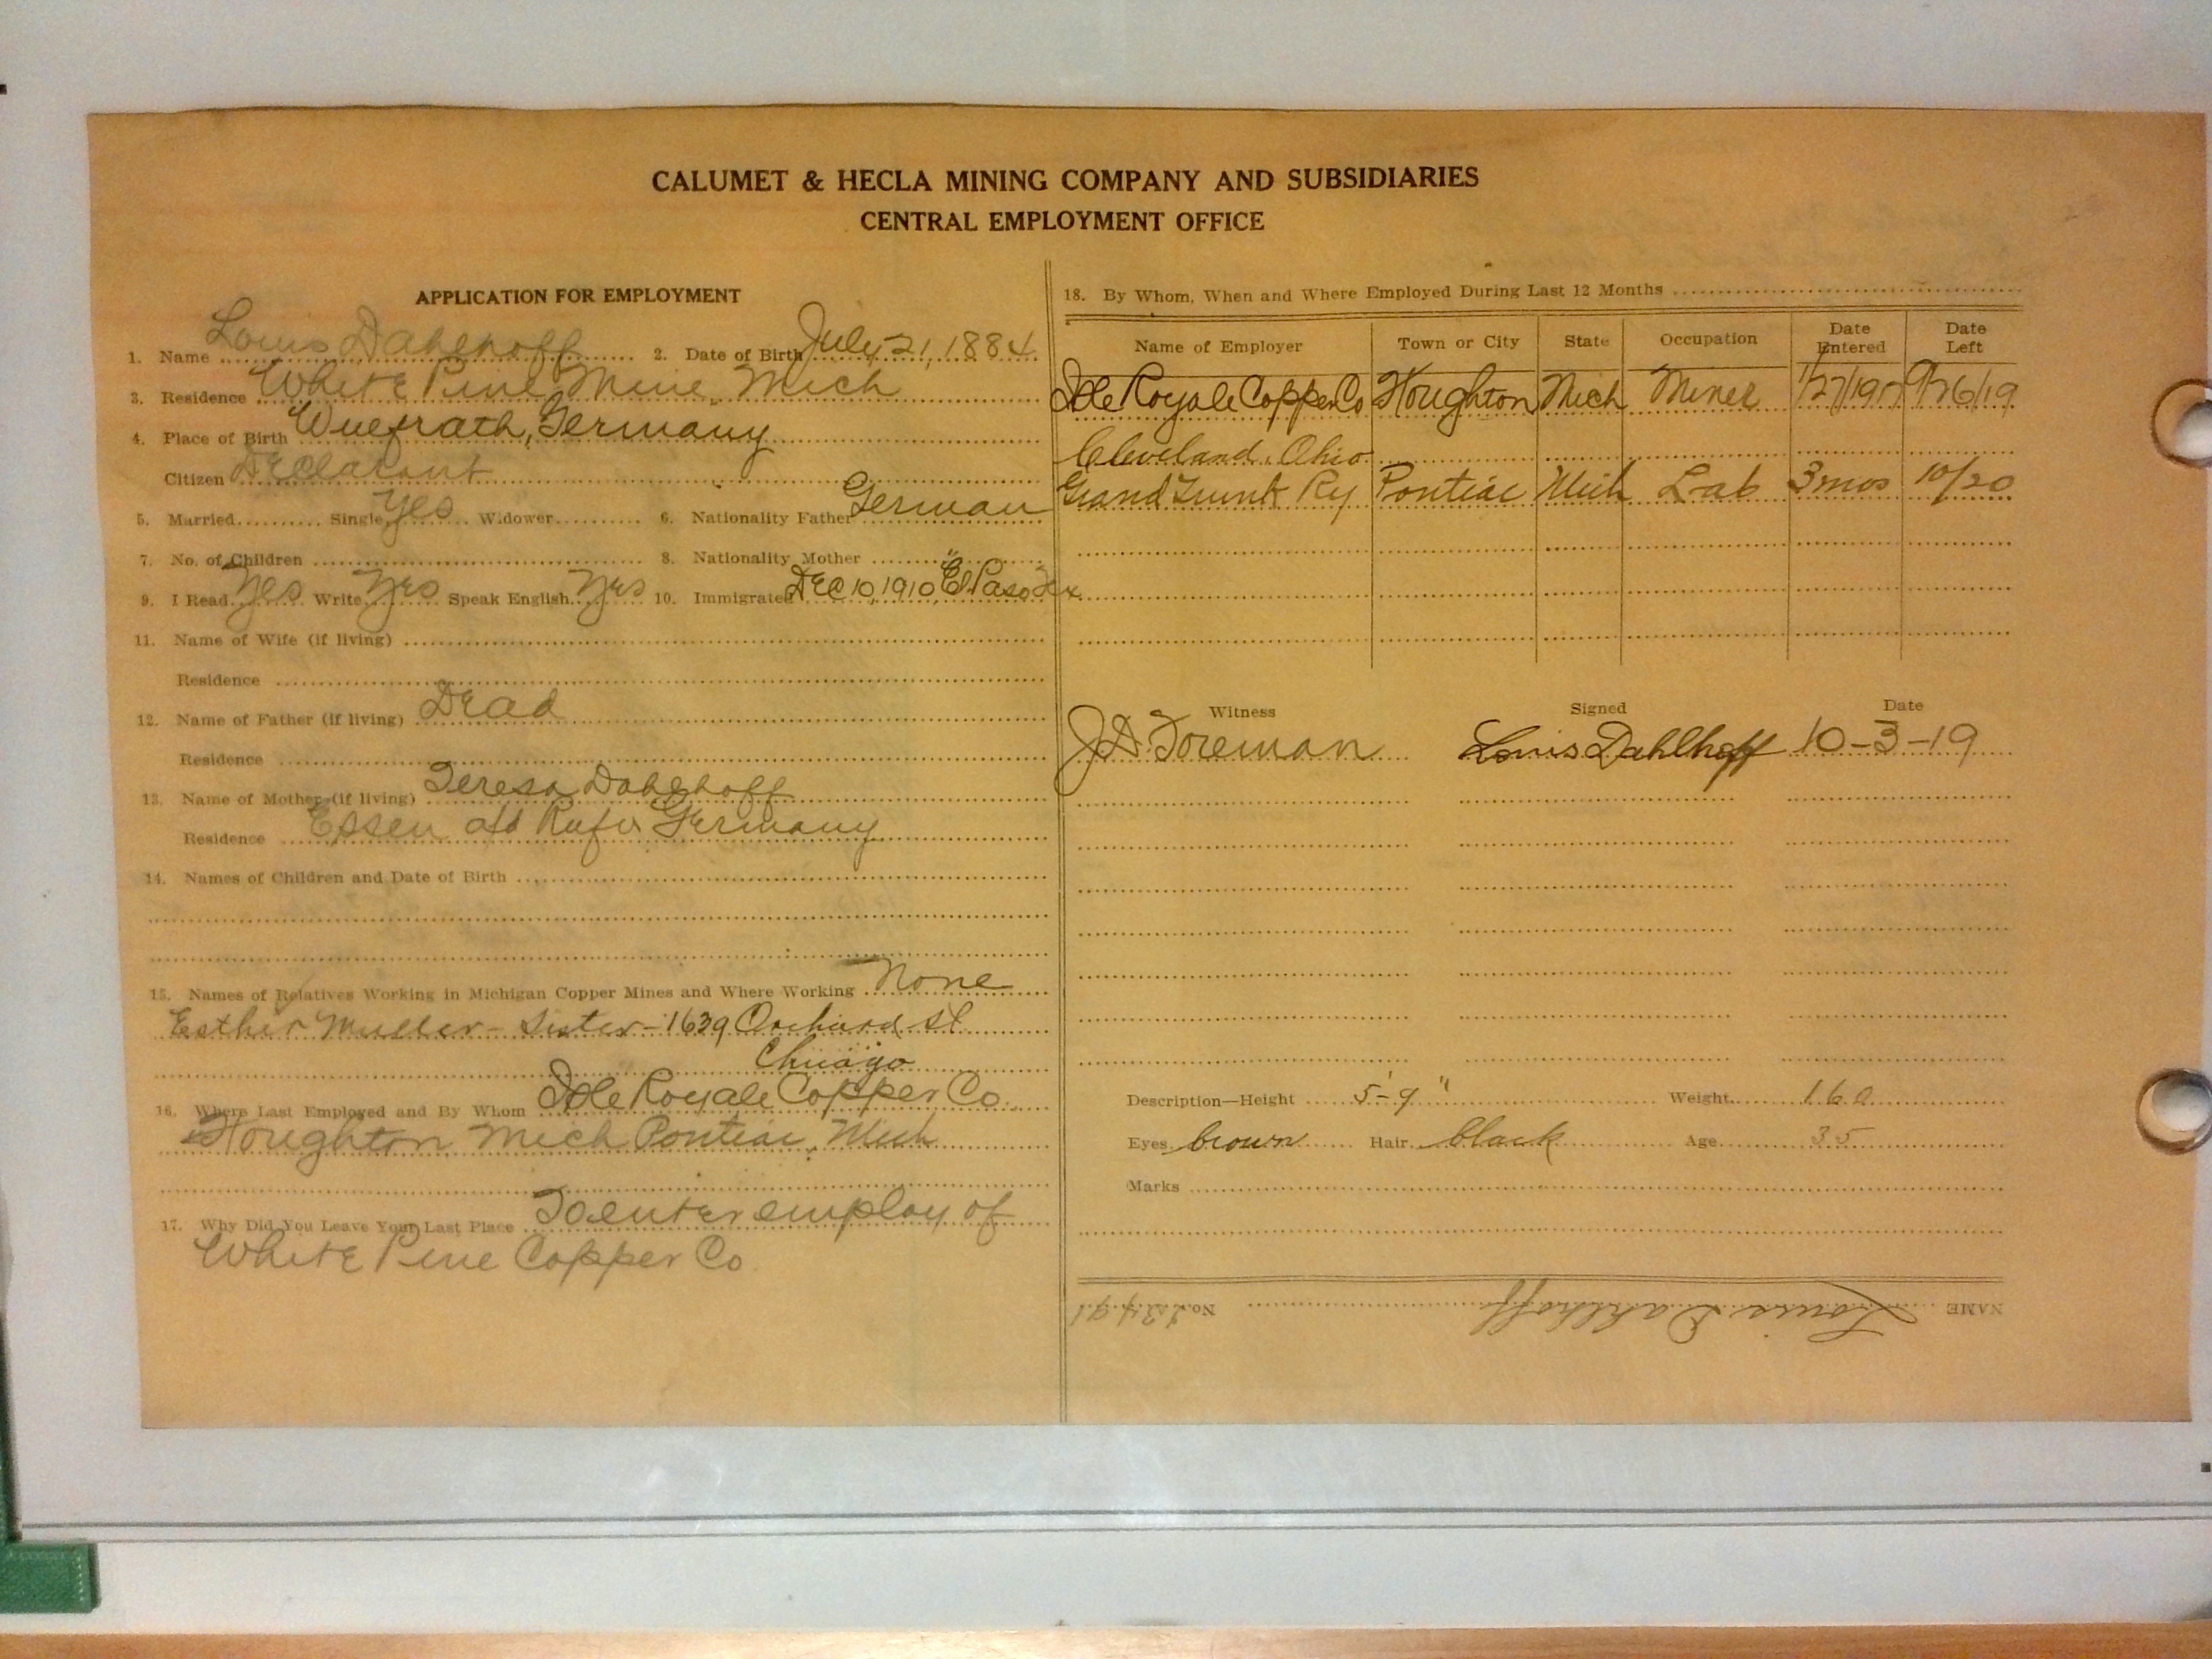 CALUMET & HECLA MINING COMPANY AND SUBSIDIARIES
CENTRAL EMPLOYMENT OFFICE
APPLICATION FOR EMPLOYMENT
1. Name Louis Dahlhoff 2. Date of Birth July 21, 1884
3. Residence White Pine Mine, Mich
4. Place of Birth Wuefrath, Germany
Citizen Declarant
5. Married Single Yes Widower 6. Nationality Father German
7. No. of Children 8. Nationality Mother "
9. I Read Yes Write Yes Speak English Yes 10. Immigrated Dec 10, 1910, El Paso Tex
11. Name of Wife (if living)
Residence
12. Name of Father (if living) Dead
Residence
13. Name of Mother (if living) Teresa Dahlhoff
Residence Essen Germany
14. Names of Children and Date of Birth
15. Names of Relatives Working in Michigan Copper Mines and Where Working None
Esther Muller - Sister - 1639 Orchard St
Chicago
16. Where Last Employed and By Whom Isle Royale Copper Co.
Houghton Mich Pontiac, Mich
17. Why Did You Leave Your Last Place To enter employ of
White Pine Copper Co
18. By Whom, When and Where Employed During Last 12 Months
Name of Employer Town or City State Occupation Date Entered Date Left
Isle Royale Copper Co Houghton Mich Miner 9/26/19
Cleveland, Ohio
Grand Trunk Ry Pontiac Mich Lab 3 mos 10/20
Witness Signed Date
J.A. Foreman Louis Dahlhoff 10-3-19
Description—Height 5'-9" Weight 160
Eyes brown Hair black Age 35
Marks
NAME Louis Dahlhoff No.